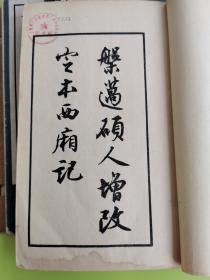 槃薖碩人增改
定本西廂記